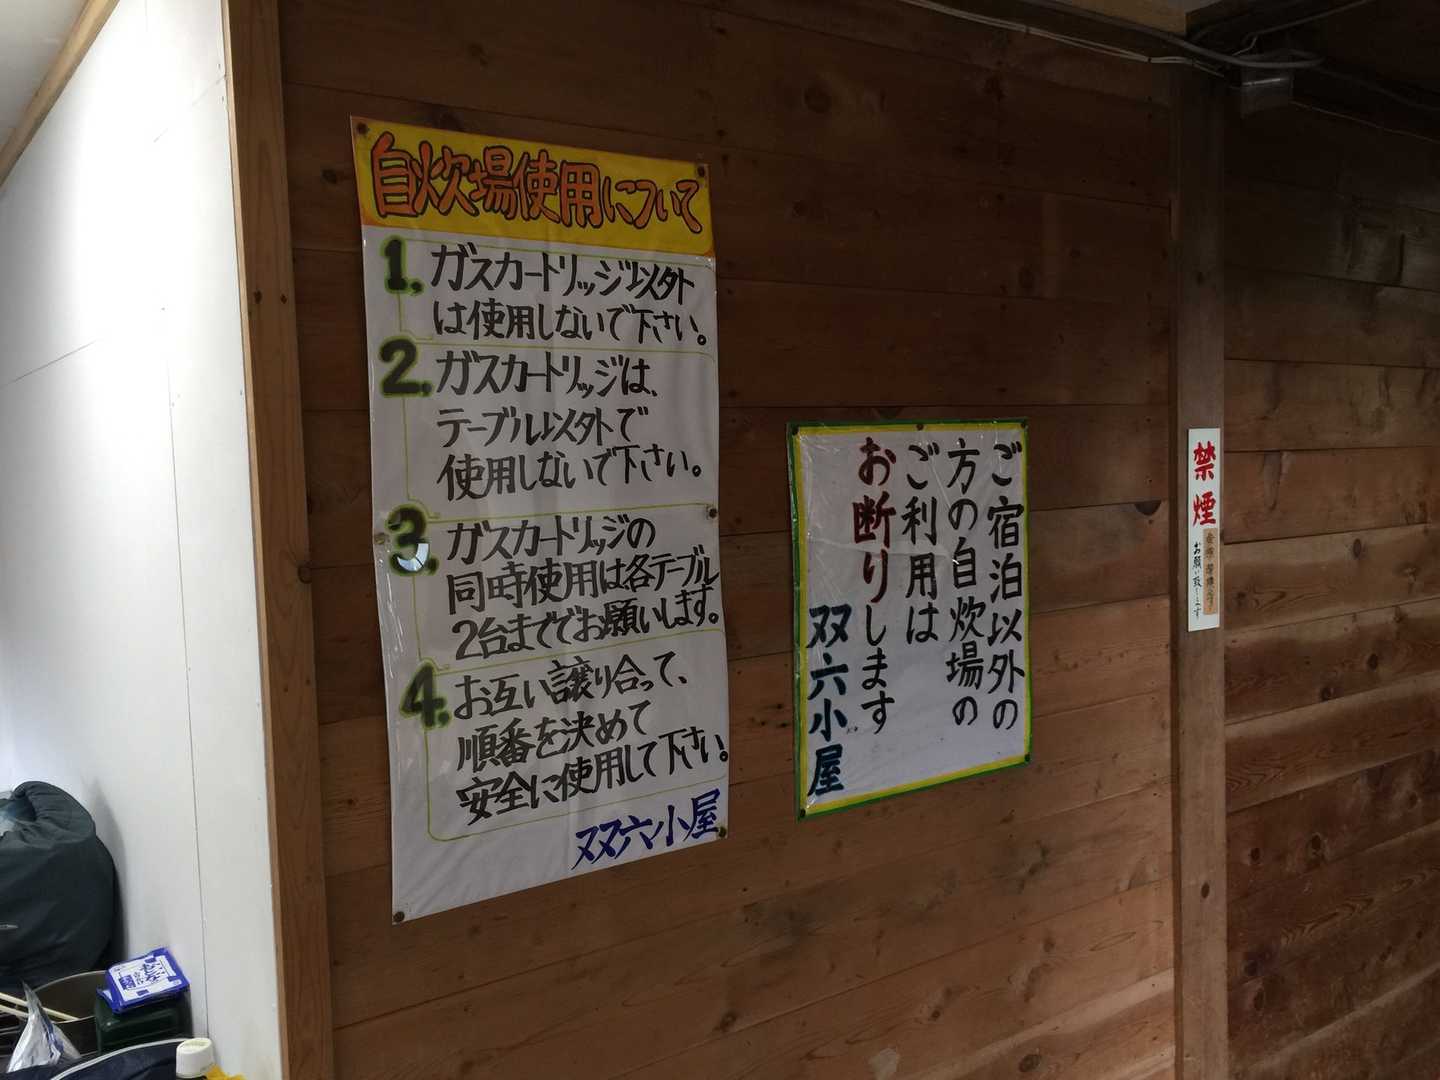 自炊場使用について
1. ガスカートリッジ以外
は使用しないで下さい。
2. ガスカートリッジは、
テーブル以外で
使用しないで下さい。
3. ガスカートリッジの
同時使用は各テーブル
2台まででお願いします。
4. お互い譲り合って、
順番を決めて
安全に使用して下さい。
双六小屋
ご宿泊以外の
方の自炊場の
ご利用は
お断りします
双六小屋
禁煙
お願い致します